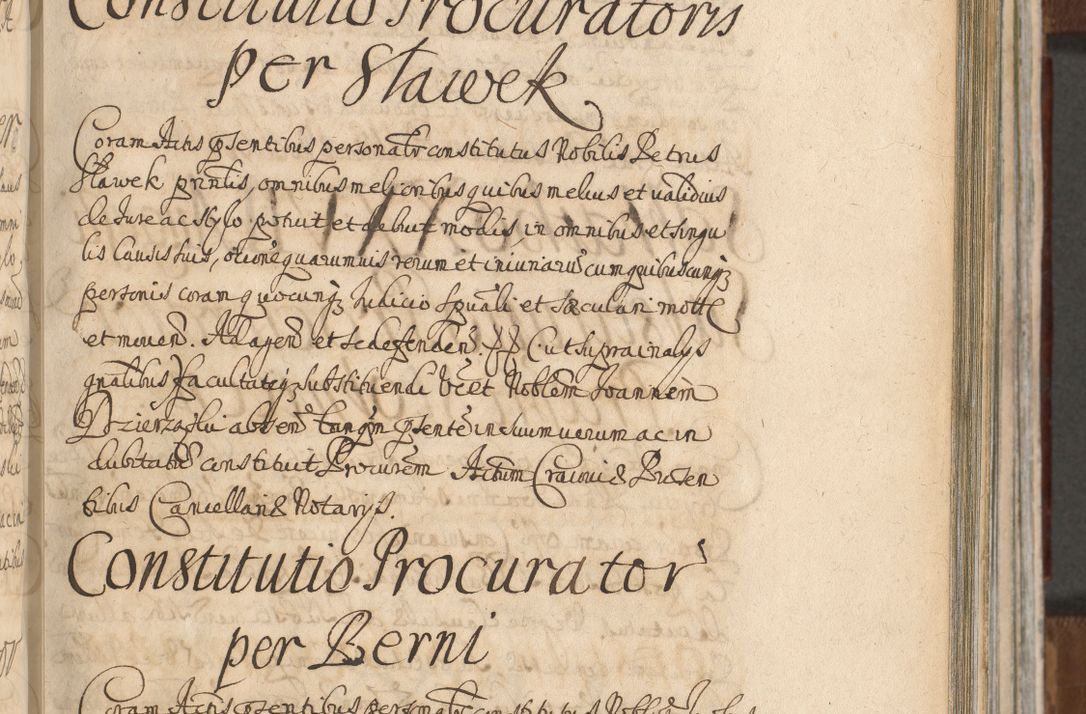 Constitutio Procuratoris
per Sławek
Coram Actis pñsentibus personalr constitutus Nobilis Petrus
Sławek prinlis, omnibus melioribus quibus melius et validius
de Jure ac stylo potuit et debuit modis, in omnibus et singu
lis Causis suis, otione quarumuis rerum et iniuriarũ cum quibuscunqꝫ
personis coram quocunqꝫ Iudicio Spuali et Sæculari motis
et mouen. Ad agen et se defenden. Cut supra in alys
gnalibus facultateqꝫ substituendi Vcet Noblem Joannem
Dzierzaski absen tanqm psente in suum uerum ac in
dubitatũ constituit Procurem Actum Cracouiæ Præsen
tibus Cancellariæ Notarijs.
Constitutio Procurator
per Berni
Coram Actis psentibus personalr constitutus Nobilis